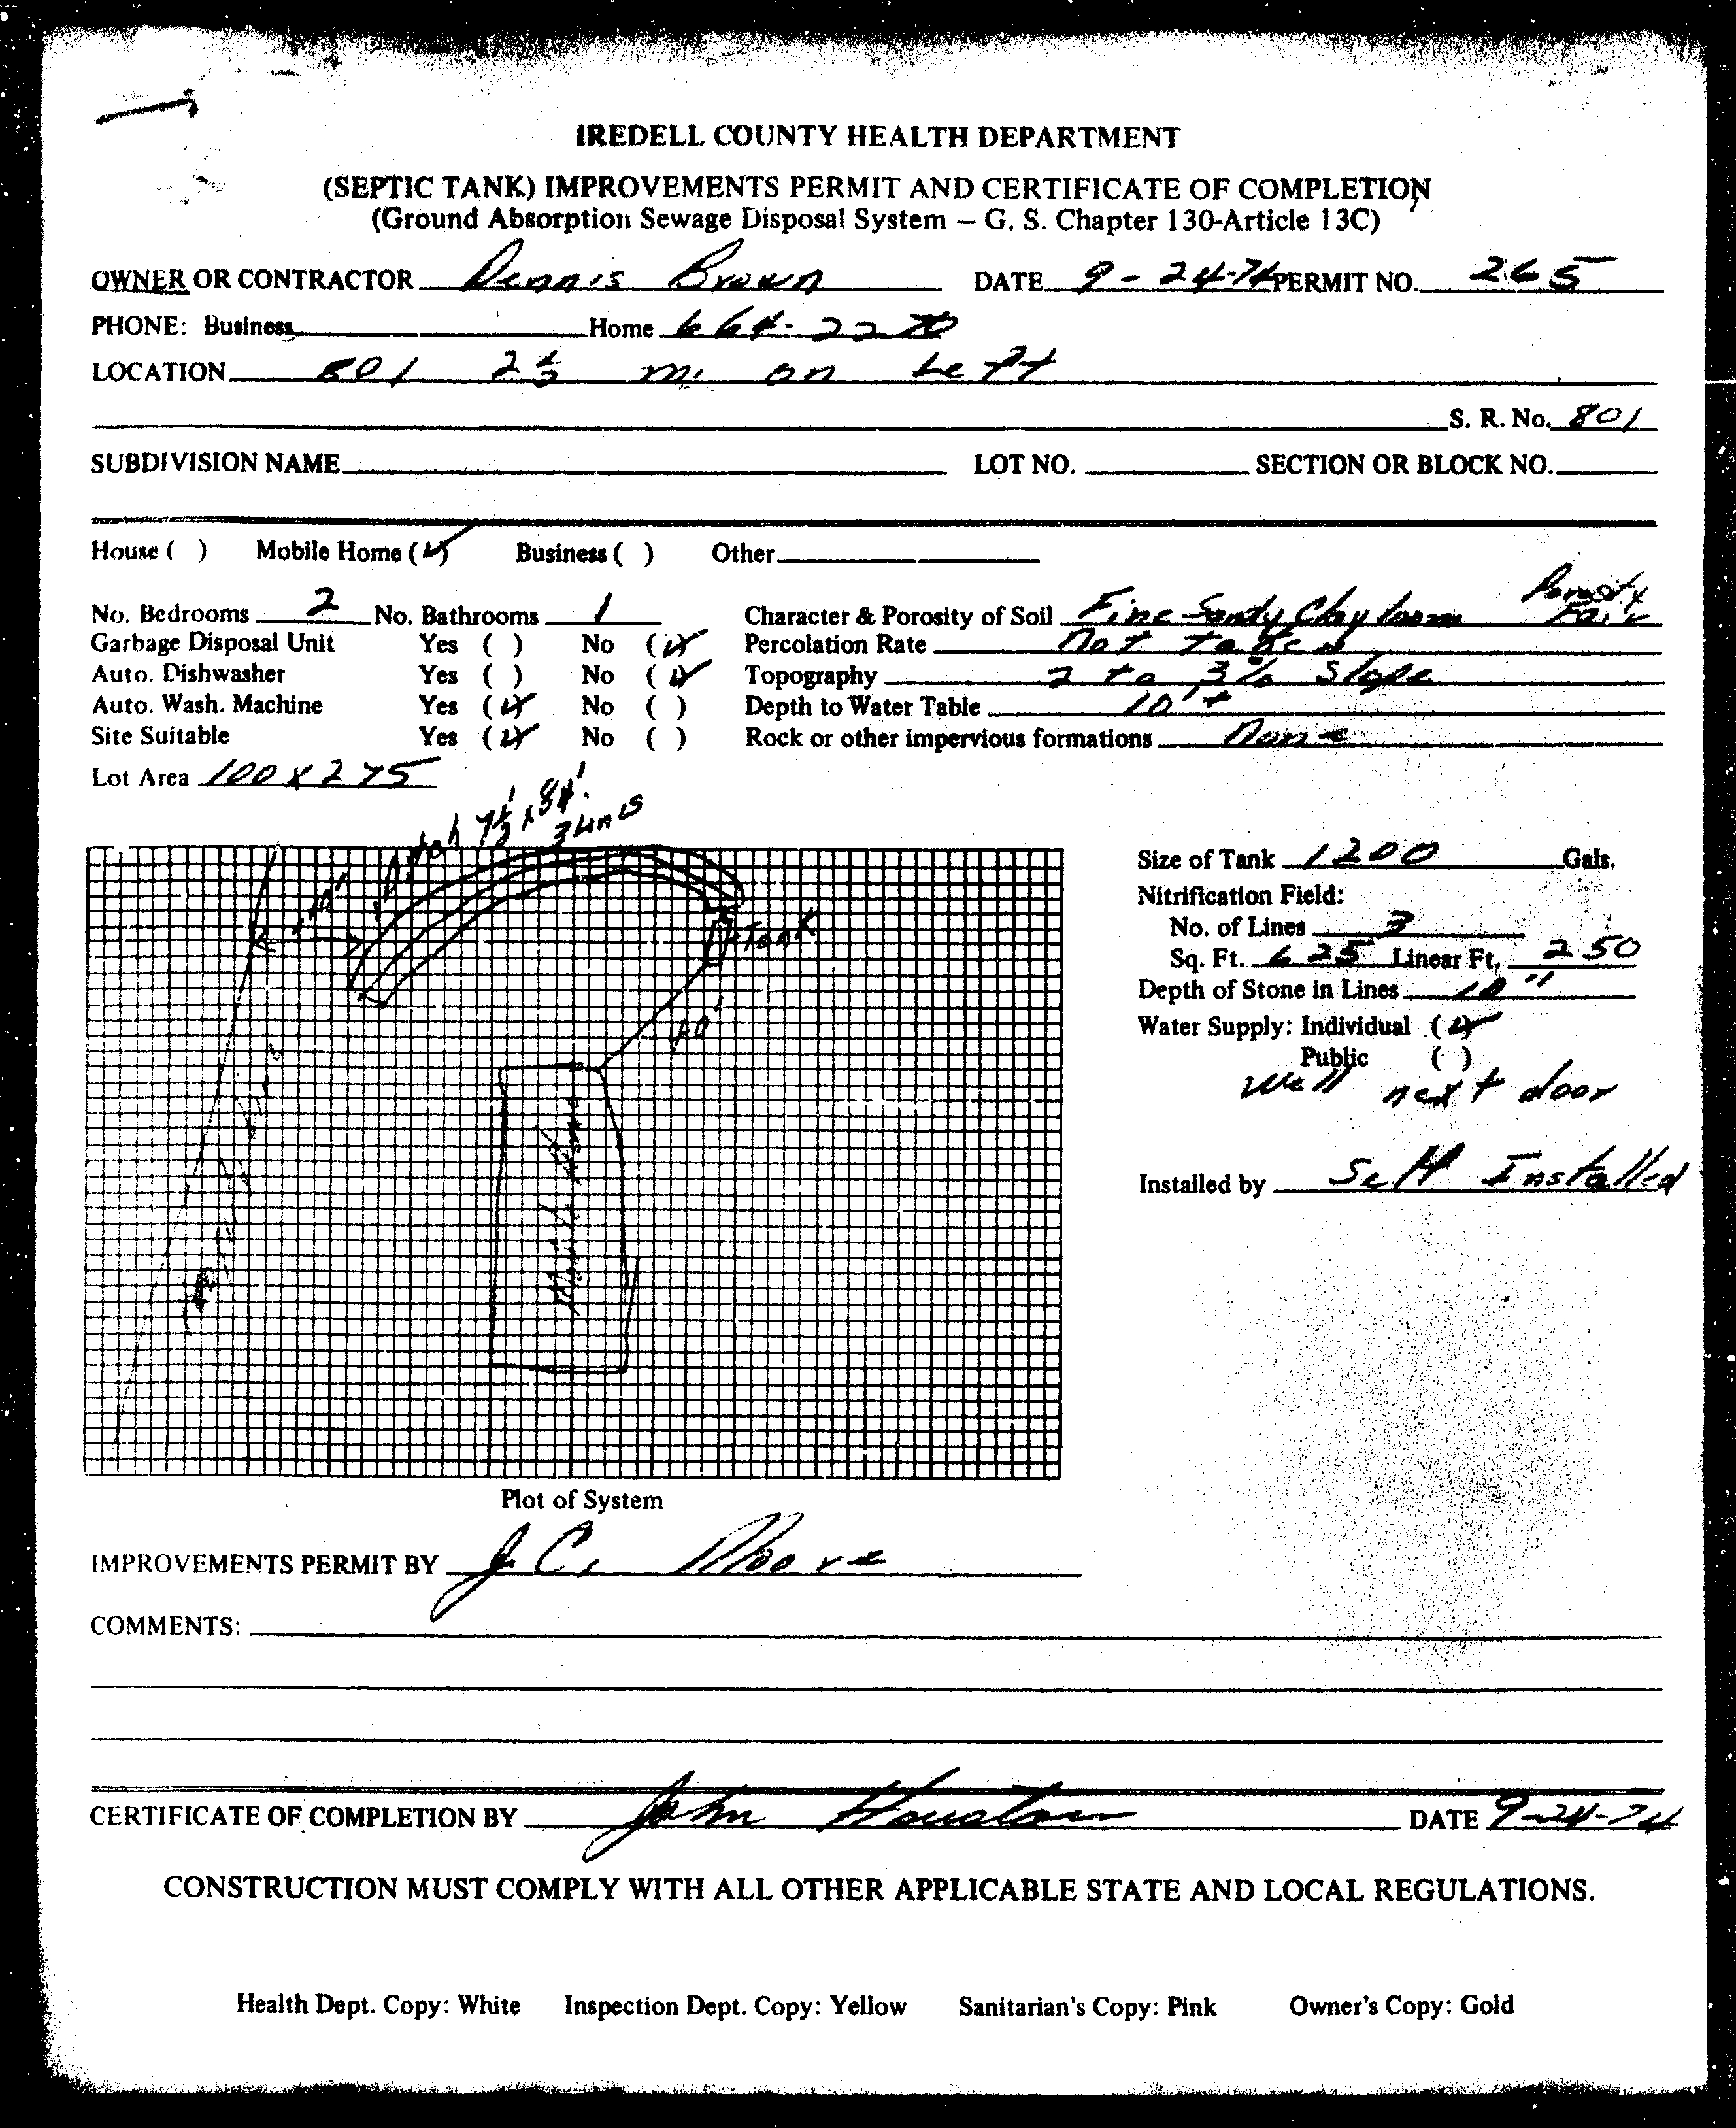 IREDELL COUNTY HEALTH DEPARTMENT
(SEPTIC TANK) IMPROVEMENTS PERMIT AND CERTIFICATE OF COMPLETION
(Ground Absorption Sewage Disposal System — G. S. Chapter 130-Article 13C)
OWNER OR CONTRACTOR Dennis Brown DATE 9-24-74 PERMIT NO. 265
PHONE: Business Home 664-2270
LOCATION 801 2½ mi on Left
S. R. No. 801
SUBDIVISION NAME LOT NO. SECTION OR BLOCK NO.
House ( ) Mobile Home (✓) Business ( ) Other
No. Bedrooms 2 No. Bathrooms 1 Character & Porosity of Soil Fine Sandy Clay loam Porosity Fair
Garbage Disposal Unit Yes ( ) No (✓) Percolation Rate not taken
Auto. Dishwasher Yes ( ) No (✓) Topography 2 to 3% Slope
Auto. Wash. Machine Yes (✓) No ( ) Depth to Water Table 10'+
Site Suitable Yes (✓) No ( ) Rock or other impervious formations None
Lot Area 100 x 275
7½' x 84'
3 Lines
10'
Tank
40'
Mobile Home
Size of Tank 1200 Gals.
Nitrification Field:
No. of Lines 3
Sq. Ft. 625 Linear Ft. 250
Depth of Stone in Lines 10"
Water Supply: Individual (✓)
Public ( )
Well next door
Installed by Self Installed
Plot of System
IMPROVEMENTS PERMIT BY J.C. Moore
COMMENTS:
CERTIFICATE OF COMPLETION BY John Houston DATE 9-24-74
CONSTRUCTION MUST COMPLY WITH ALL OTHER APPLICABLE STATE AND LOCAL REGULATIONS.
Health Dept. Copy: White Inspection Dept. Copy: Yellow Sanitarian's Copy: Pink Owner's Copy: Gold